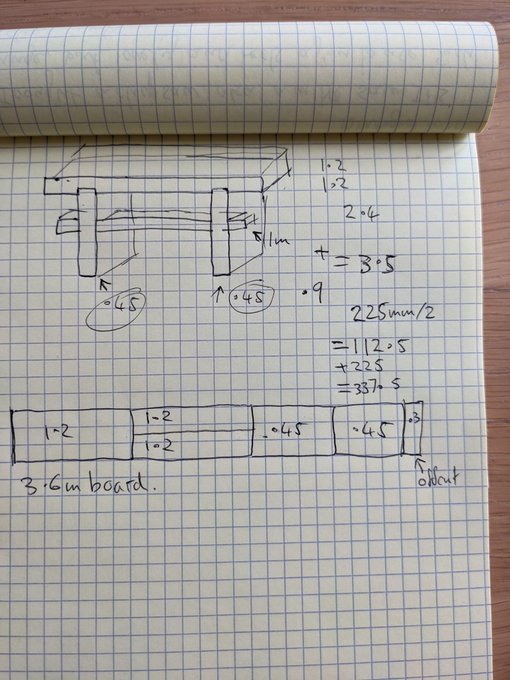 1.2
1.2
2.4
1m
+ = 3.5
.45
.45
.9
225mm/2
= 112.5
+ 225
= 337.5
1.2
1.2
1.2
.45
.45
.3
3.6m board.
offcut